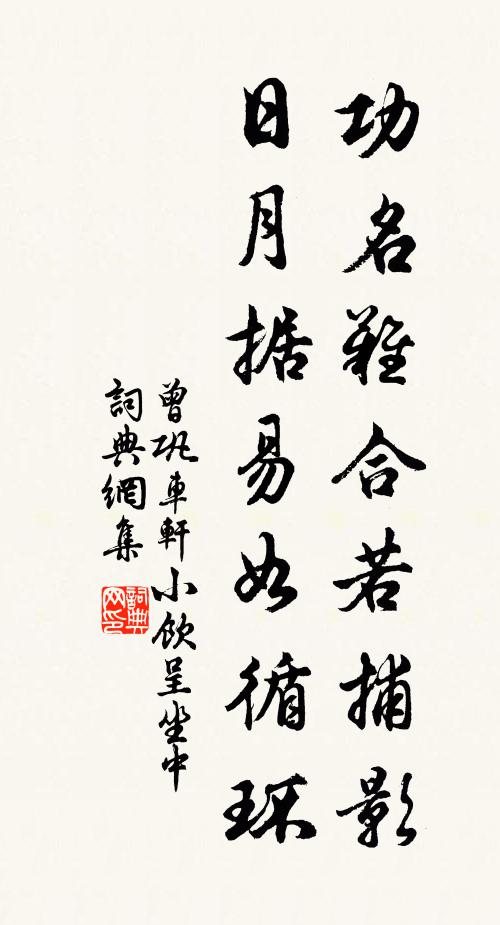 功名難合若捕影
日月據易如循環
曾巩車軒小飲呈坐中
詞典網集
詞典
网印